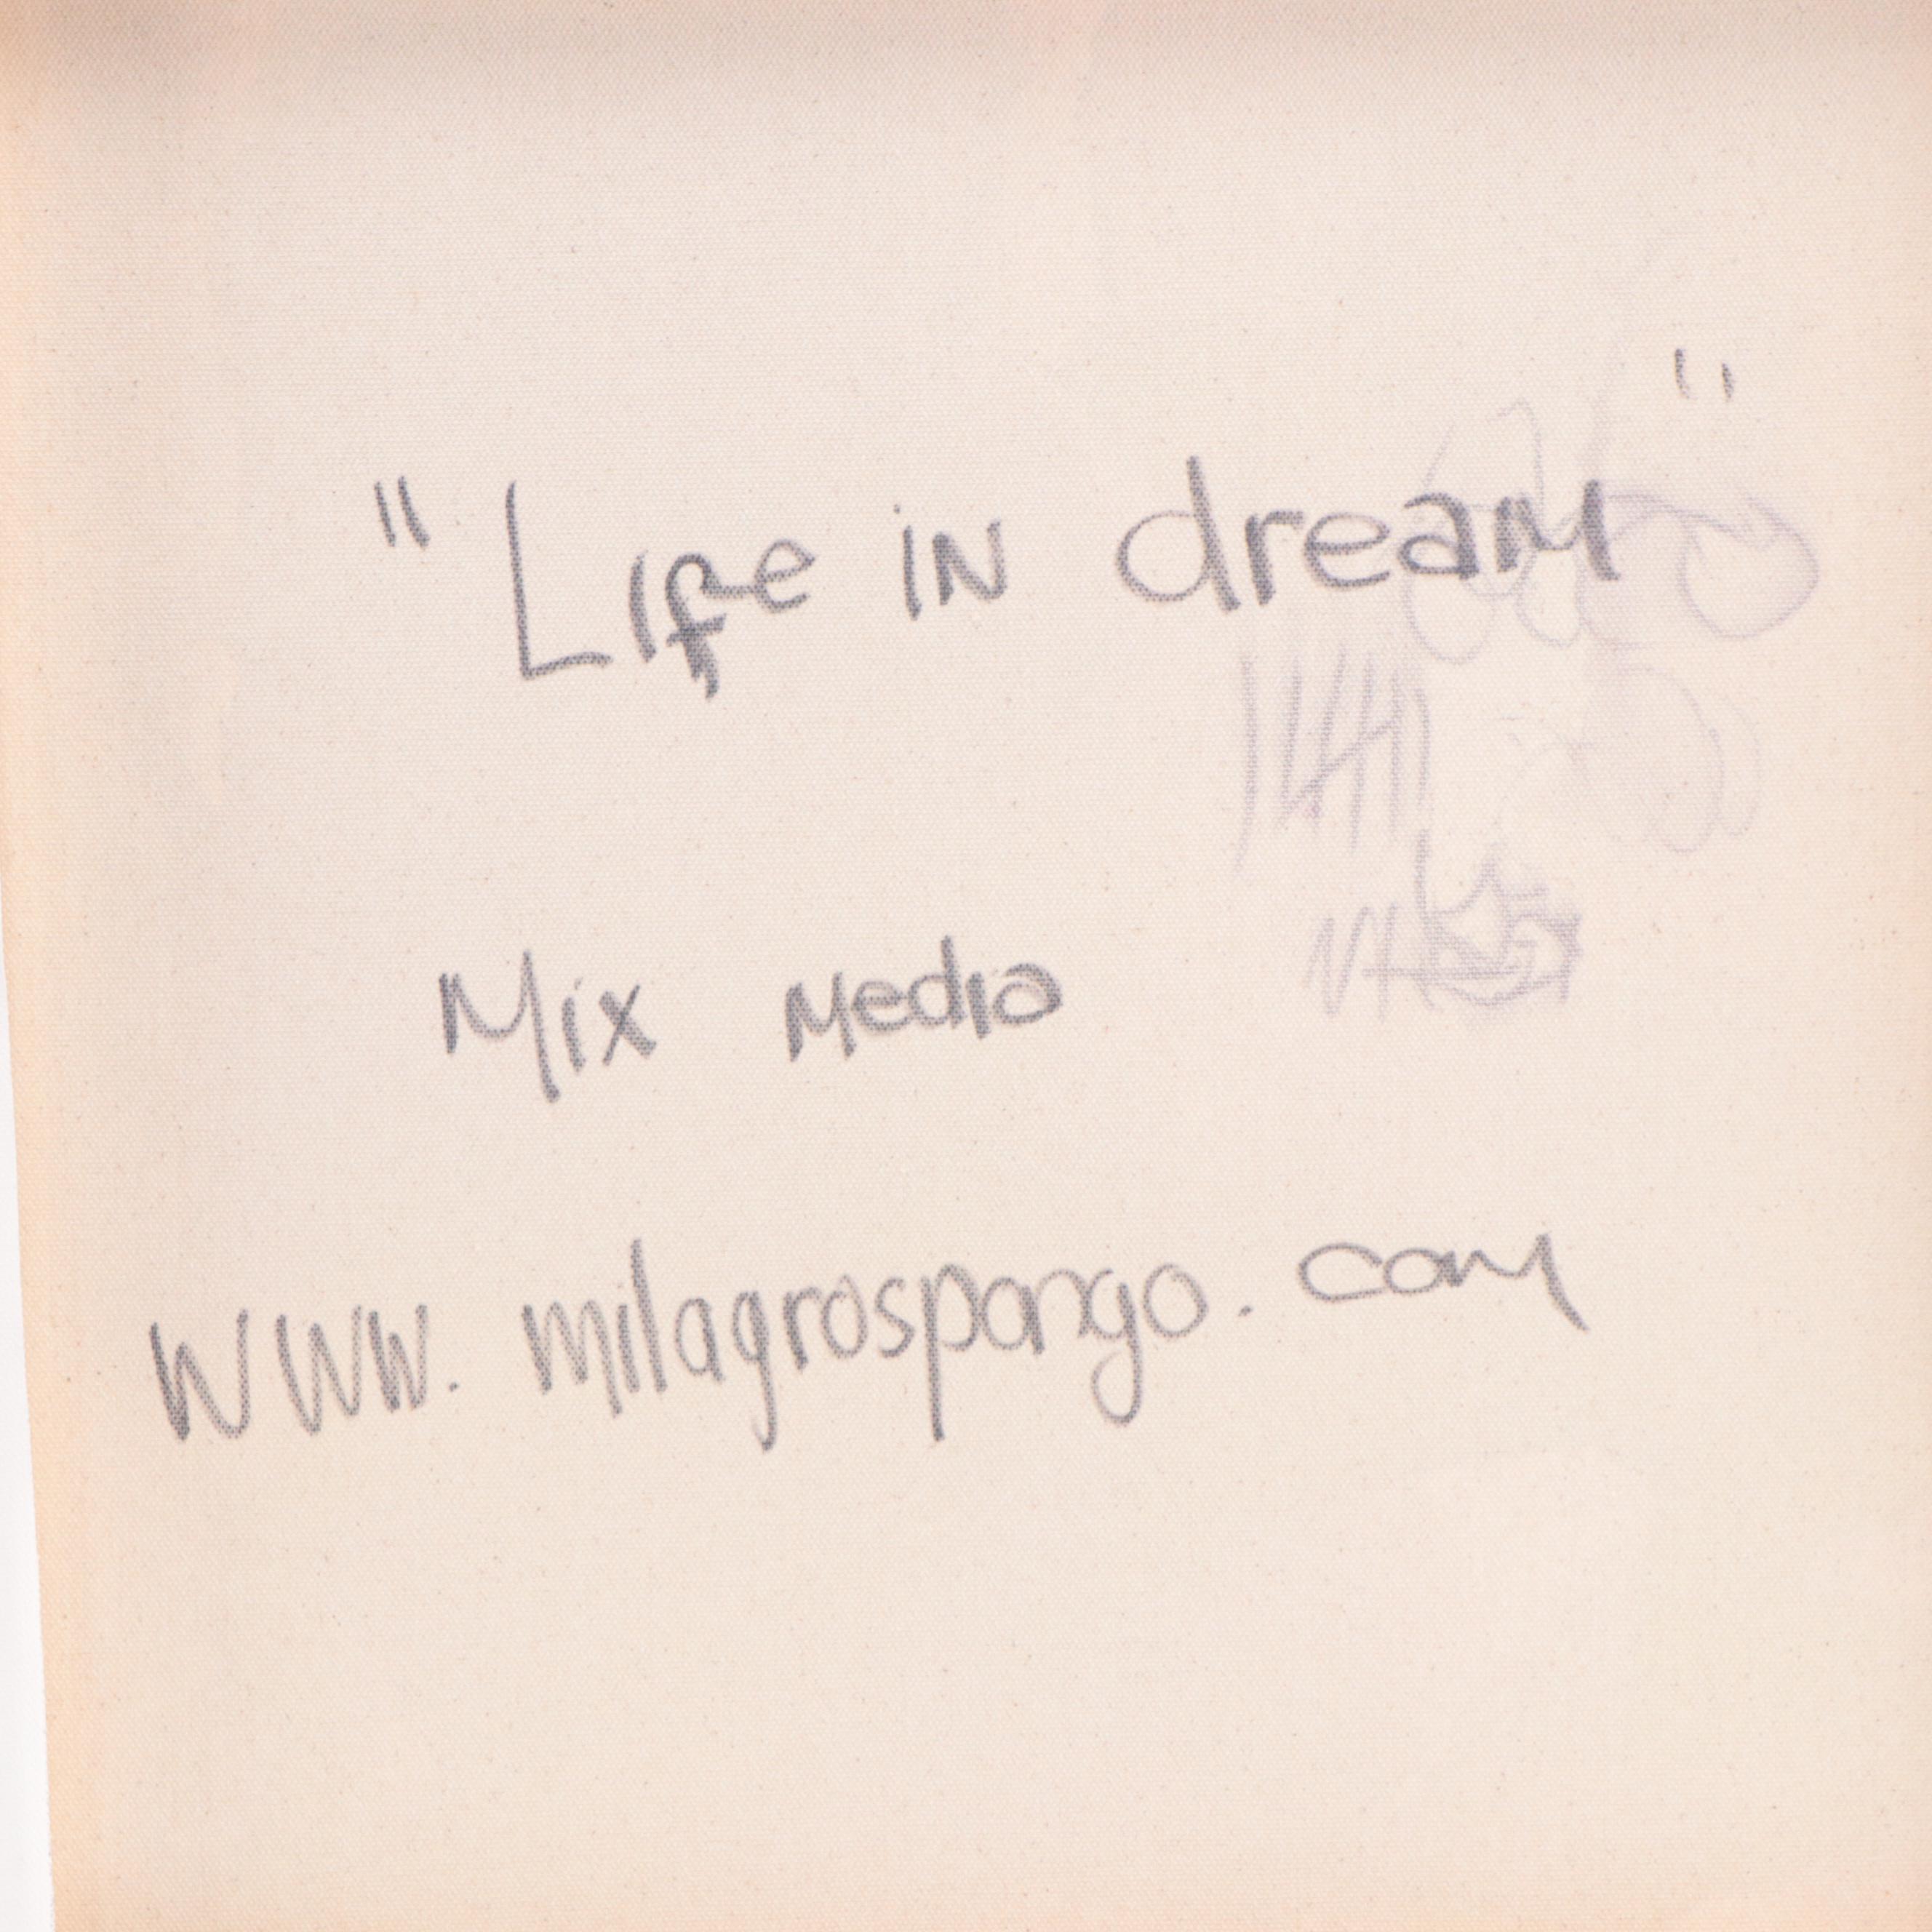 "Life in dream"
Mix Media
www.milagrospongo.com